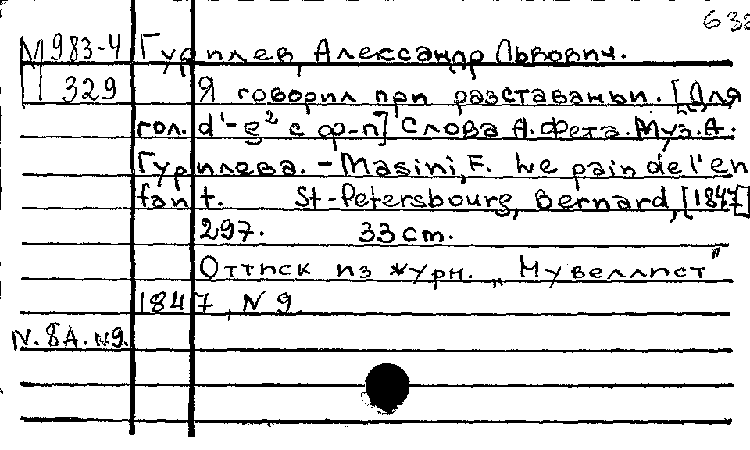 638
М 983-4 Гурилев, Александр Львович.
П 329 Я говорил при разставаньи. [Для
гол. d'-g² с ф-п] Слова А. Фета. Муз. А.
Гурилева. - Masini, F. Le pain de l'en
fant. St-Petersbourg, Bernard, [1847]
297. 33 cm.
Оттиск из журн. „Нувеллист"
1847, N 9.
N. 8А. N9.